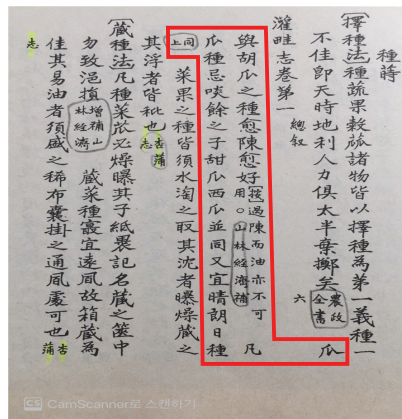 種蒔
〔擇種法種蔬果穀蓏諸物皆以擇種爲第一義種一
不佳卽天時地利人力俱太半棄擲矣 農政全書 瓜
灌畦志卷第一 總叙 六
與胡瓜之種愈陳愈好〔按過陳而油亦不可用〇山林經濟補 凡
瓜種忌啖餘之子甜瓜西瓜並同又宜晴朗日種
同上 菜果之種皆須水淘之取其沈者曝燥藏之
其浮者皆秕也 杏蒲志
〔藏種法凡種菜必燥曝其子紙裹記名藏之篋中
勿致浥損 增補山林經濟 藏菜種宜遠風故箱藏爲
佳其易油者須盛之稀布囊掛之通風處可也 杏蒲
志
CS CamScanner로 스캔하기